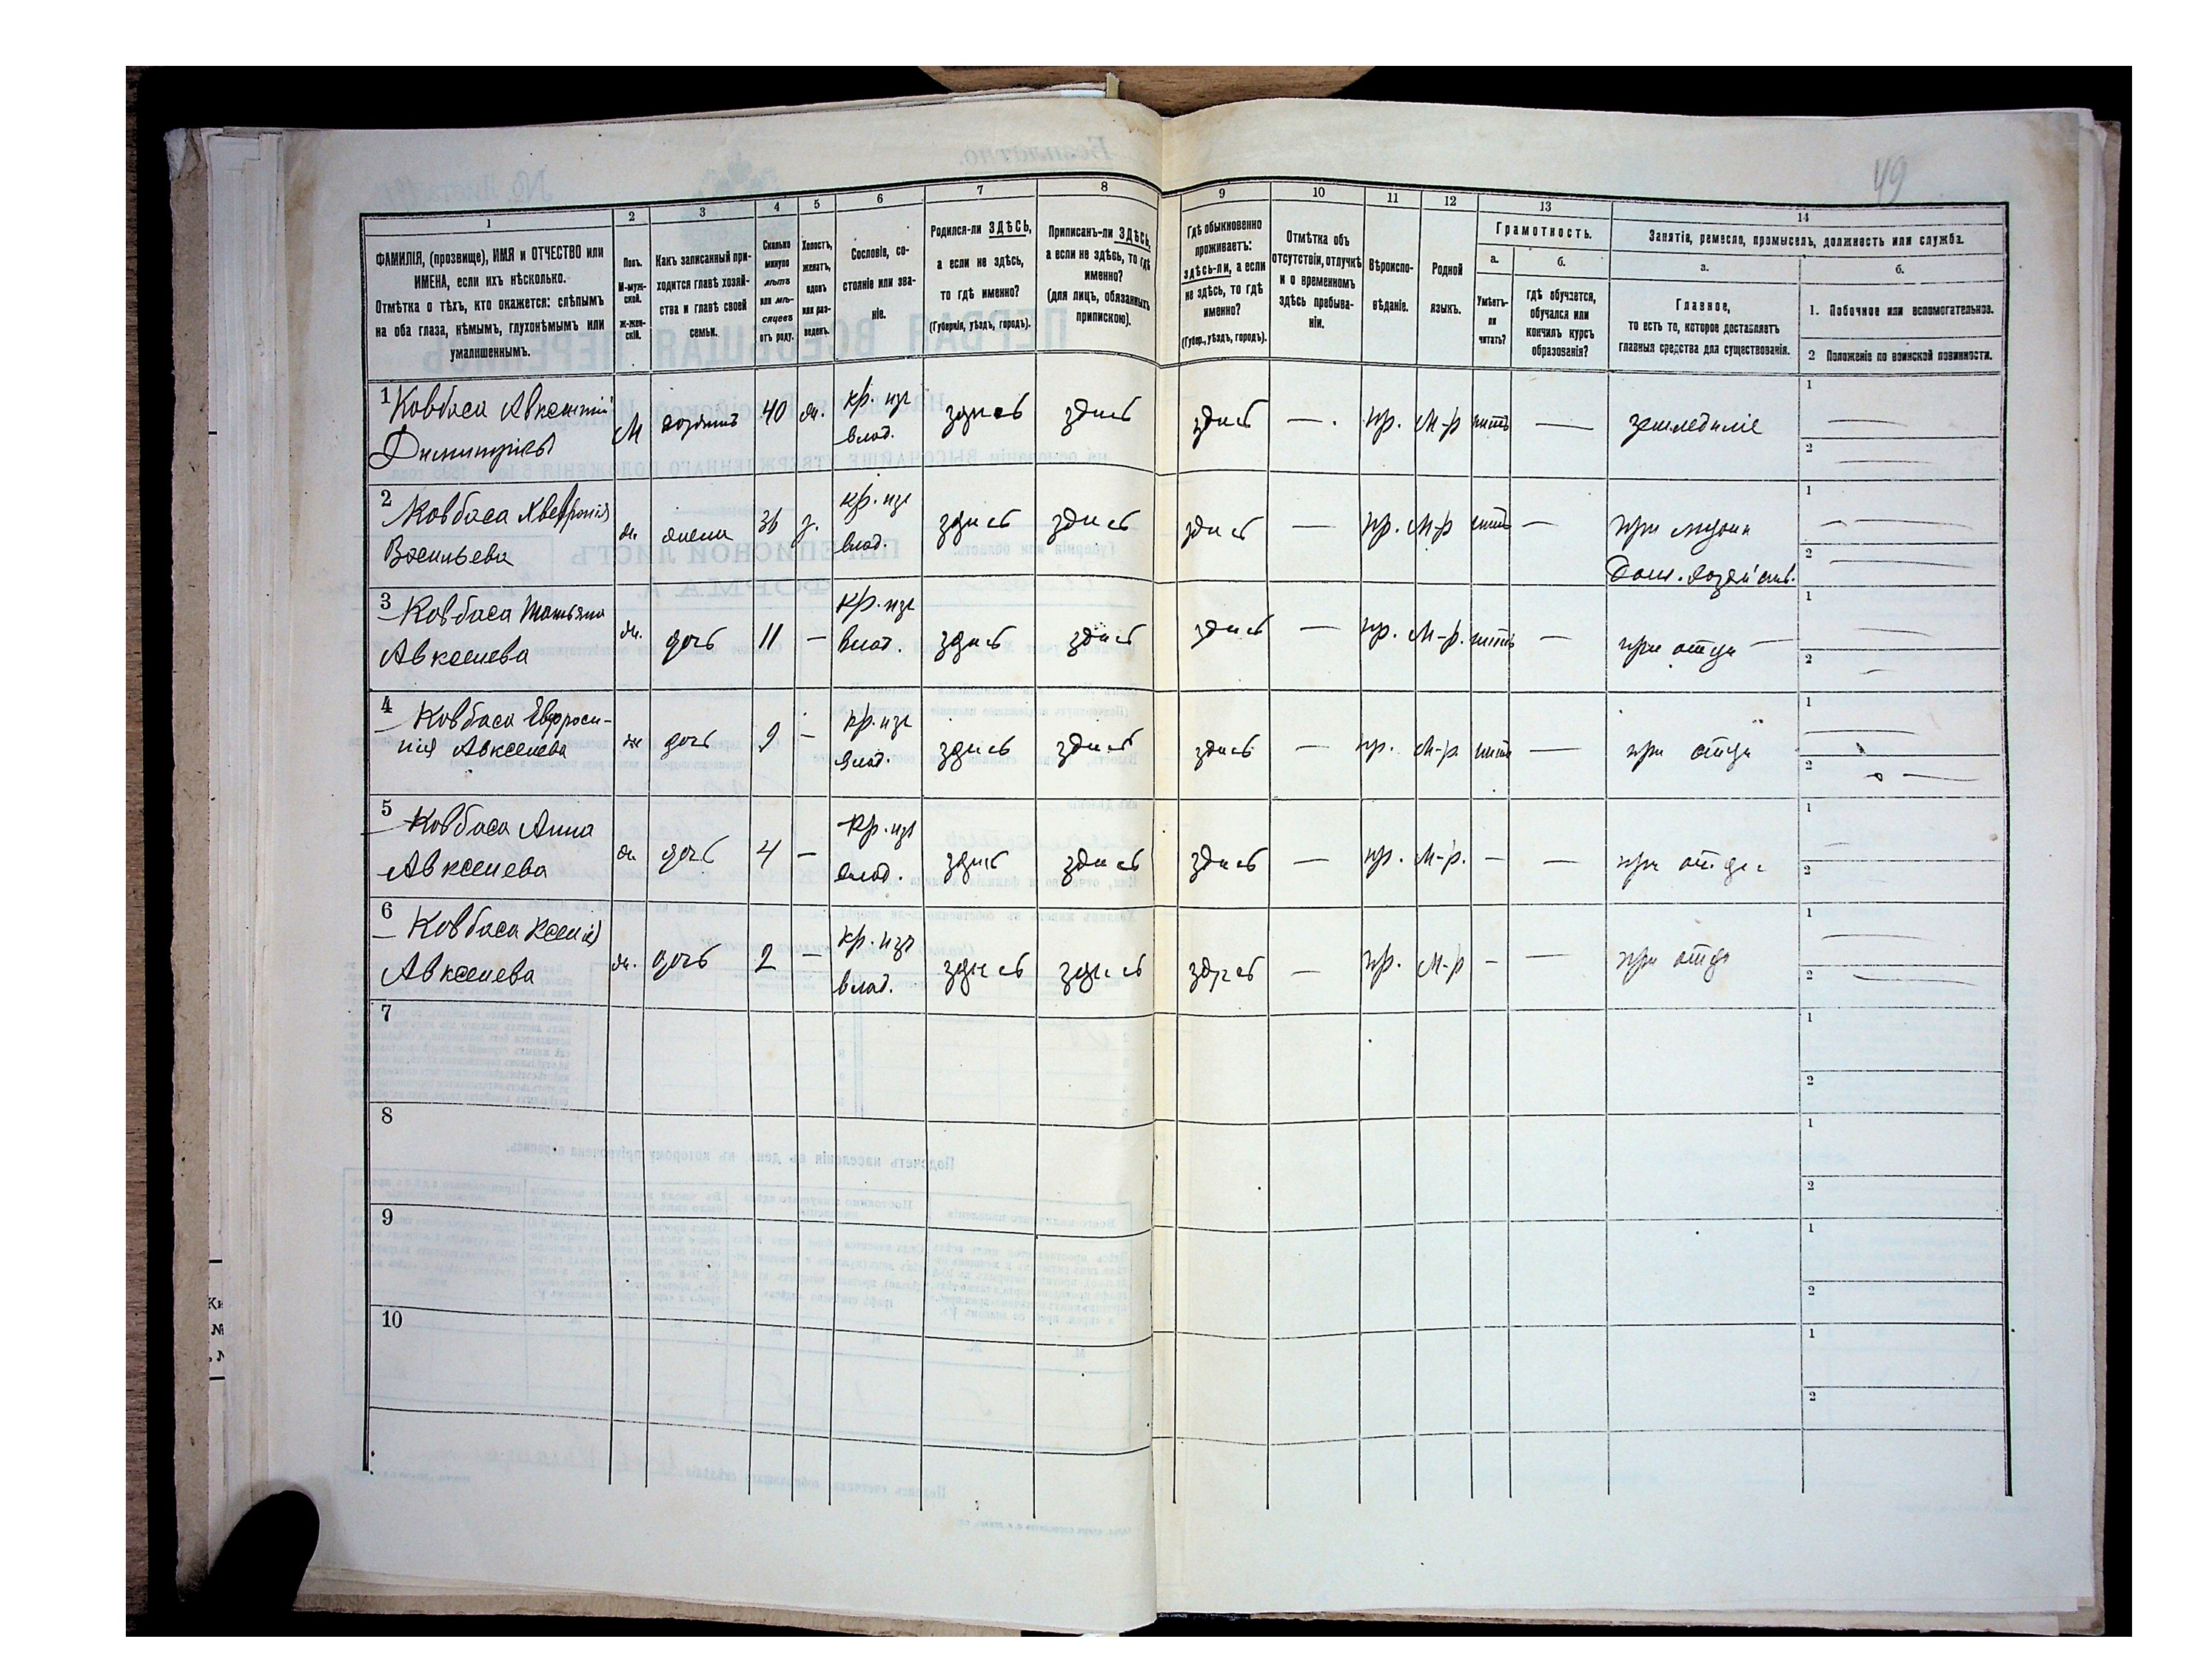 49
1
2
3
4
5
6
7
8
9
10
11
12
13
14
ФАМИЛІЯ, (прозвище), ИМЯ и ОТЧЕСТВО или
ИМЕНА, если ихъ нѣсколько.
Отмѣтка о тѣхъ, кто окажется: слѣпымъ
на оба глаза, нѣмымъ, глухонѣмымъ или
умалишеннымъ.
Полъ.
М-муж-
ской.
Ж-жен-
скій.
Какъ записанный при-
ходится главѣ хозяй-
ства и главѣ своей
семьи.
Сколько
минуло
лѣтъ
или мѣ-
сяцевъ
отъ роду.
Холостъ,
женатъ,
вдовъ
или раз-
веденъ.
Сословіе, со-
стояніе или зва-
ніе.
Родился-ли ЗДѢСЬ,
а если не здѣсь,
то гдѣ именно?
(Губернія, уѣздъ, городъ).
Приписанъ-ли ЗДѢСЬ,
а если не здѣсь, то гдѣ
именно?
(для лицъ, обязанныхъ
припискою).
Гдѣ обыкновенно
проживаетъ:
здѣсь-ли, а если
не здѣсь, то гдѣ
именно?
(Губер., уѣздъ, городъ).
Отмѣтка объ
отсутствіи, отлучкѣ
и о временномъ
здѣсь пребыва-
ніи.
Вѣроиспо-
вѣданіе.
Родной
языкъ.
Грамотность.
а.
Умѣетъ-
ли
читать?
б.
гдѣ обучается,
обучался или
кончилъ курсъ
образованія?
Занятіе, ремесло, промыселъ, должность или служба.
а.
Главное,
то есть то, которое доставляетъ
главныя средства для существованія.
б.
1. Побочное или вспомогательное.
2 Положеніе по воинской повинности.
1 Ковбаса Авксентій
Димитріевъ
М хозяинъ 40 ж. кр. изъ
влад.
здѣсь здѣсь здѣсь — пр. М-р нѣтъ — земледѣліе 1 —
2 —
2 Ковбаса Хвевронія
Васильева
ж. жена 36 з. кр. изъ
влад.
здѣсь здѣсь здѣсь — пр. М-р нѣтъ — при
Дом. хозяйств.
1 —
2 —
3 Ковбаса Татьяна
Авксенева
ж. дочь 11 — кр. изъ
влад.
здѣсь здѣсь здѣсь — пр. М-р. нѣтъ — при отцѣ 1 —
2 —
4 Ковбаса Евфроси-
нія Авксенева
ж дочь 9 — кр. изъ
влад.
здѣсь здѣсь здѣсь — пр. М-р нѣтъ — при отцѣ 1 —
2 —
5 Ковбаса Анна
Авксенева
ж. дочь 4 — кр. изъ
влад.
здѣсь здѣсь здѣсь — пр. М-р. — — при отцѣ 1 —
2 —
6 Ковбаса Ксенія
Авксенева
ж. дочь 2 — кр. изъ
влад.
здѣсь здѣсь здѣсь — пр. М-р — — при отцѣ 1 —
2 —
7 1
2
8 1
2
9 1
2
10 1
2